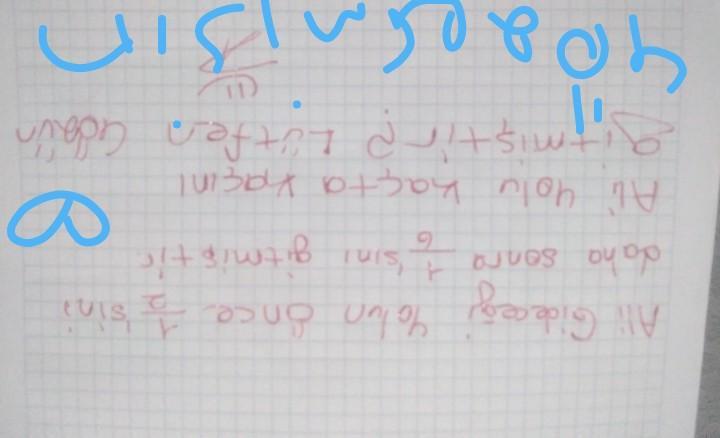 Ali Gideceği yolun önce 1/2 'sini
daha sonra 1/6 'sini gitmiştir
Ali yolu kaçta kaçını
gitmiştir? Lütfen yapın